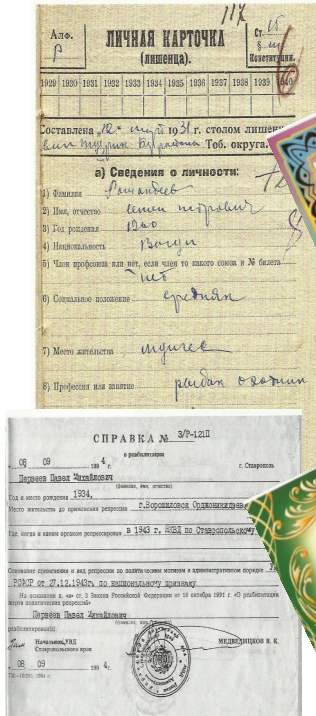 117
Алф. ЛИЧНАЯ КАРТОЧКА Ст. 15
Р (лишенца). §
Конституции.
1929 1930 1931 1932 1933 1934 1935 1936 1937 1938 1939 1940
Составлена 193 г. столом лишен
Тоб. округа.
а) Сведения о личности:
1) Фамилия
2) Имя, отчество Семен Петрович
3) Год рождения
4) Национальность Вогул
5) Член профсоюза или нет, если член то какого союза и № билета
нет
6) Социальное положение середняк
7) Место жительства
8) Профессия или занятие рыбак охотник
СПРАВКА № 3/Р-121П
о реабилитации
" 08 " 09 199 4 г. г. Ставрополь
Перваев Павел Михайлович
(фамилия, имя, отчество)
Год и место рождения 1934,
Место жительства до применения репрессии г.Ворошиловск Орджоникидзев
Где, когда и каким органом репрессирован в 1943 г. НКВД по Ставропольскому
Основание применения и вид репрессии по политическим мотивам в административном порядке
РСФСР от 27.12.1943г. по национальному признаку
На основании п. «в» ст. 3 Закона Российской Федерации от 18 октября 1991 г. «О реабилитации
жертв политических репрессий»
Перваев Павел Михайлович
(фамилия, имя,
реабилитирован(а)
Начальник УВД МЕДВЕДИЦКОВ В. К.
Ставропольского края
" 08 " 09 199 4 г.